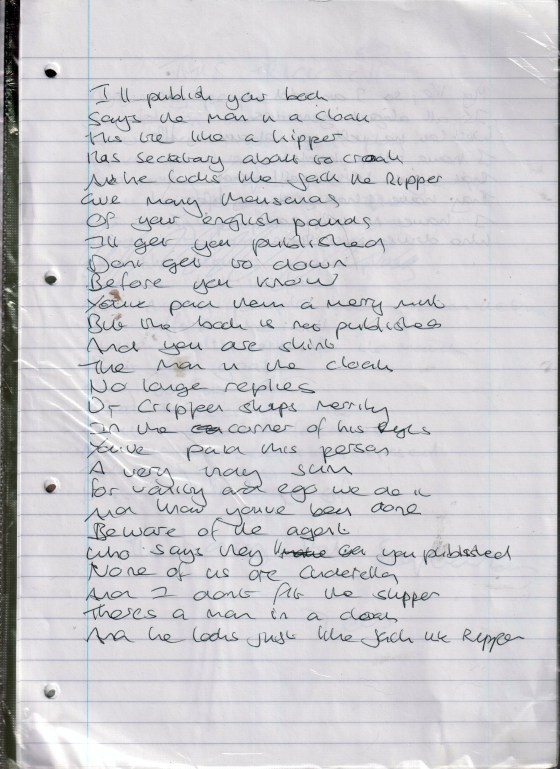 I'll publish your book
Says the man in a cloak
His like a kipper
His secretary about to croak
And he looks like Jack the Ripper
Give many thousands
Of your english pounds
I'll get you published
Dont get so down
Before you know
Youve paid them a merry mint
But the book is not published
And you are skint
The man in the cloak
No longer replies
Dr Crippen sleeps merrily
In the corner of his eyes
You've paid this person
A very tidy sum
For vanity and ego we do it
And know youve been done
Beware of the agent
Who says they'll get you published
None of us are Cinderella
And I don't fit the slipper
Theres a man in a cloak
And he looks just like Jack the Ripper